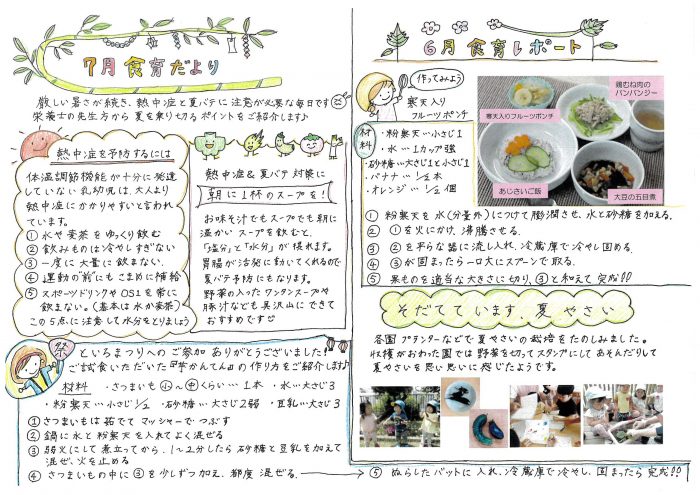 7月食育だより
厳しい暑さが続き、熱中症と夏バテに注意が必要な毎日です
栄養士の先生方から夏を乗り切るポイントをご紹介します♪
熱中症を予防するには
体温調節機能が十分に発達
していない乳幼児は、大人より
熱中症にかかりやすいと言われ
ています。
① 水や麦茶をゆっくり飲む
② 飲みものは冷やしすぎない
③ 一度に大量に飲まない。
④ 運動の"前"にもこまめに補給
⑤ スポーツドリンクやOS1を常に
飲まない。(基本は水か麦茶)
この5点に注意して水分をとりましょう
熱中症&夏バテ対策に
朝に1杯のスープを!
お味そ汁でもスープでも朝に
温かいスープを飲むと、
「塩分」と「水分」が摂れます。
胃腸が活発に動いてくれるので
夏バテ予防にもなります。
野菜の入ったワンタンスープや
豚汁なども具沢山にできて
おすすめです☺
祭
といろまつりへのご参加ありがとうございました!
ご試食いただいた『芋かんてん』の作り方をご紹介します♪
材料 ・さつまいも 小~中くらい…1本 ・水…大さじ3
・粉寒天…小さじ1/2 ・砂糖…大さじ2弱 ・豆乳…大さじ3
① さつまいもは茹でてマッシャーでつぶす
② 鍋に水と粉寒天を入れてよく混ぜる
③ 弱火にして煮立ってから、1~2分したら砂糖と豆乳を加えて
混ぜ、火を止める
④ さつまいもの中に③を少しずつ加え、都度混ぜる。
⑤ ぬらしたバットに入れ、冷蔵庫で冷やし、固まったら完成!!
6月食育レポート
作ってみよう
寒天入り
フルーツポンチ
材料
・粉寒天…小さじ1
・水…1カップ強
・砂糖…大さじ1と小さじ1
・バナナ…1/2本
・オレンジ…1/2個
鶏むね肉の
バンバンジー
寒天入りフルーツポンチ
あじさいご飯
大豆の五目煮
① 粉寒天を水(分量外)につけて膨潤させ、水と砂糖を加える。
② ①を火にかけ、沸騰させる。
③ ②を平らな器に流し入れ、冷蔵庫で冷やし固める。
④ ③が固まったら一口大にスプーンで取る。
⑤ 果ものを適当な大きさに切り、③と和えて完成!!
そだてています、夏やさい
各園プランターなどで夏やさいの栽培をたのしみました。
収穫がおわった園では野菜を切ってスタンプにしてあそんだりして
夏やさいを思い思いに感じたようです。